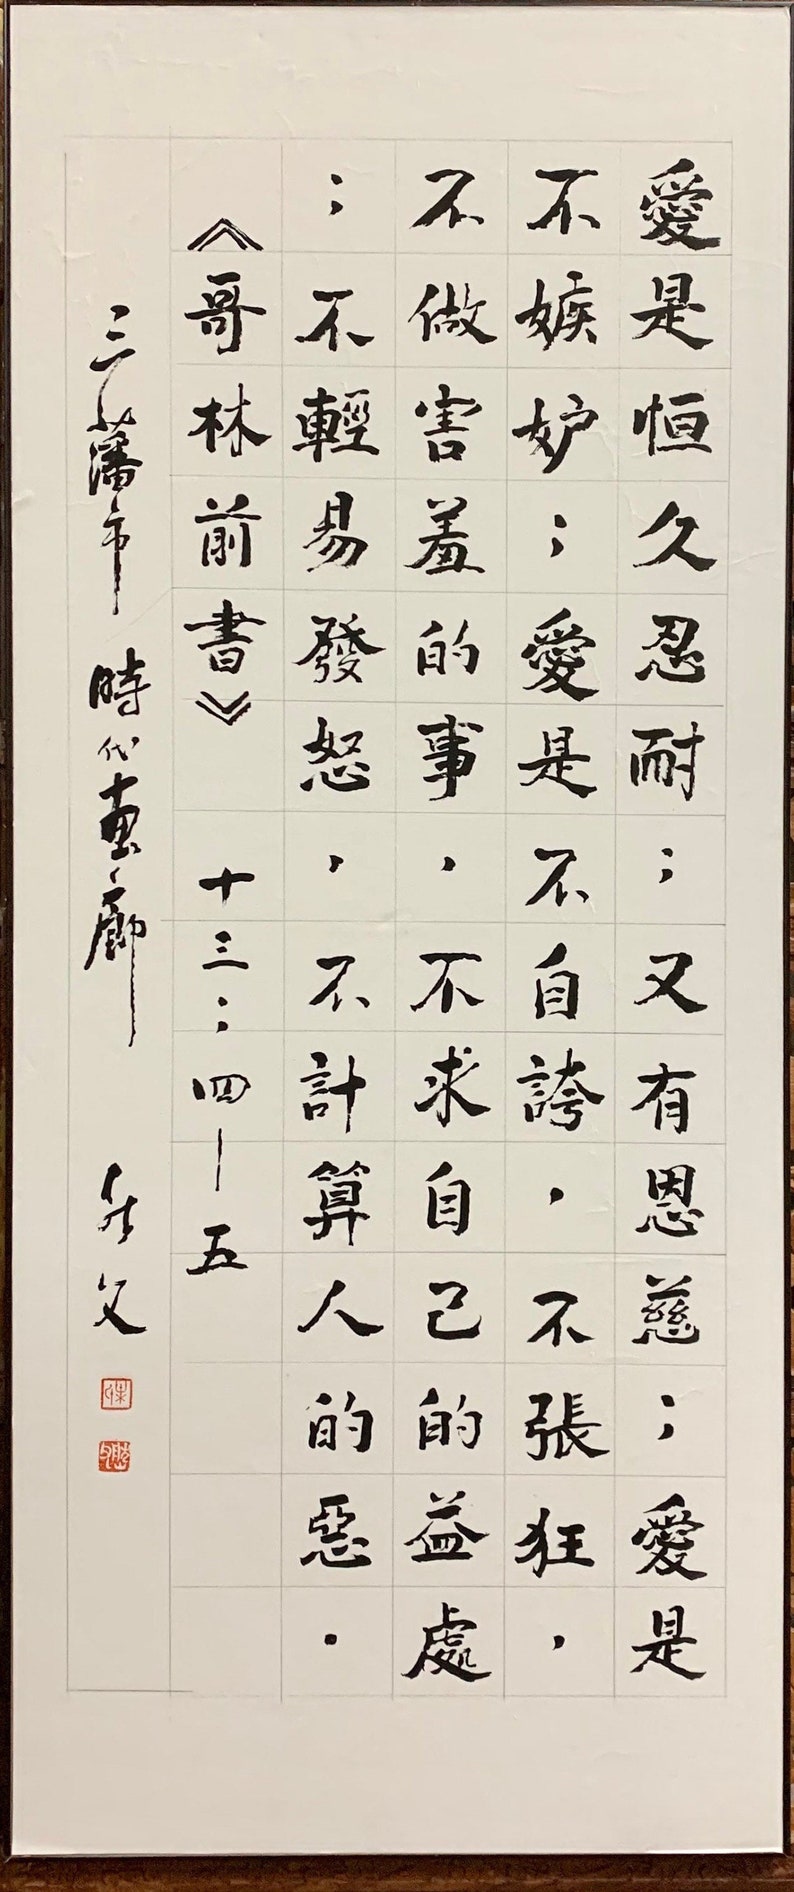 愛是恒久忍耐；又有恩慈；愛是
不嫉妒；愛是不自誇，不張狂，
不做害羞的事，不求自己的益處
；不輕易發怒，不計算人的惡．
《哥林前書》 十三：四－五
三藩市 時代畫廊